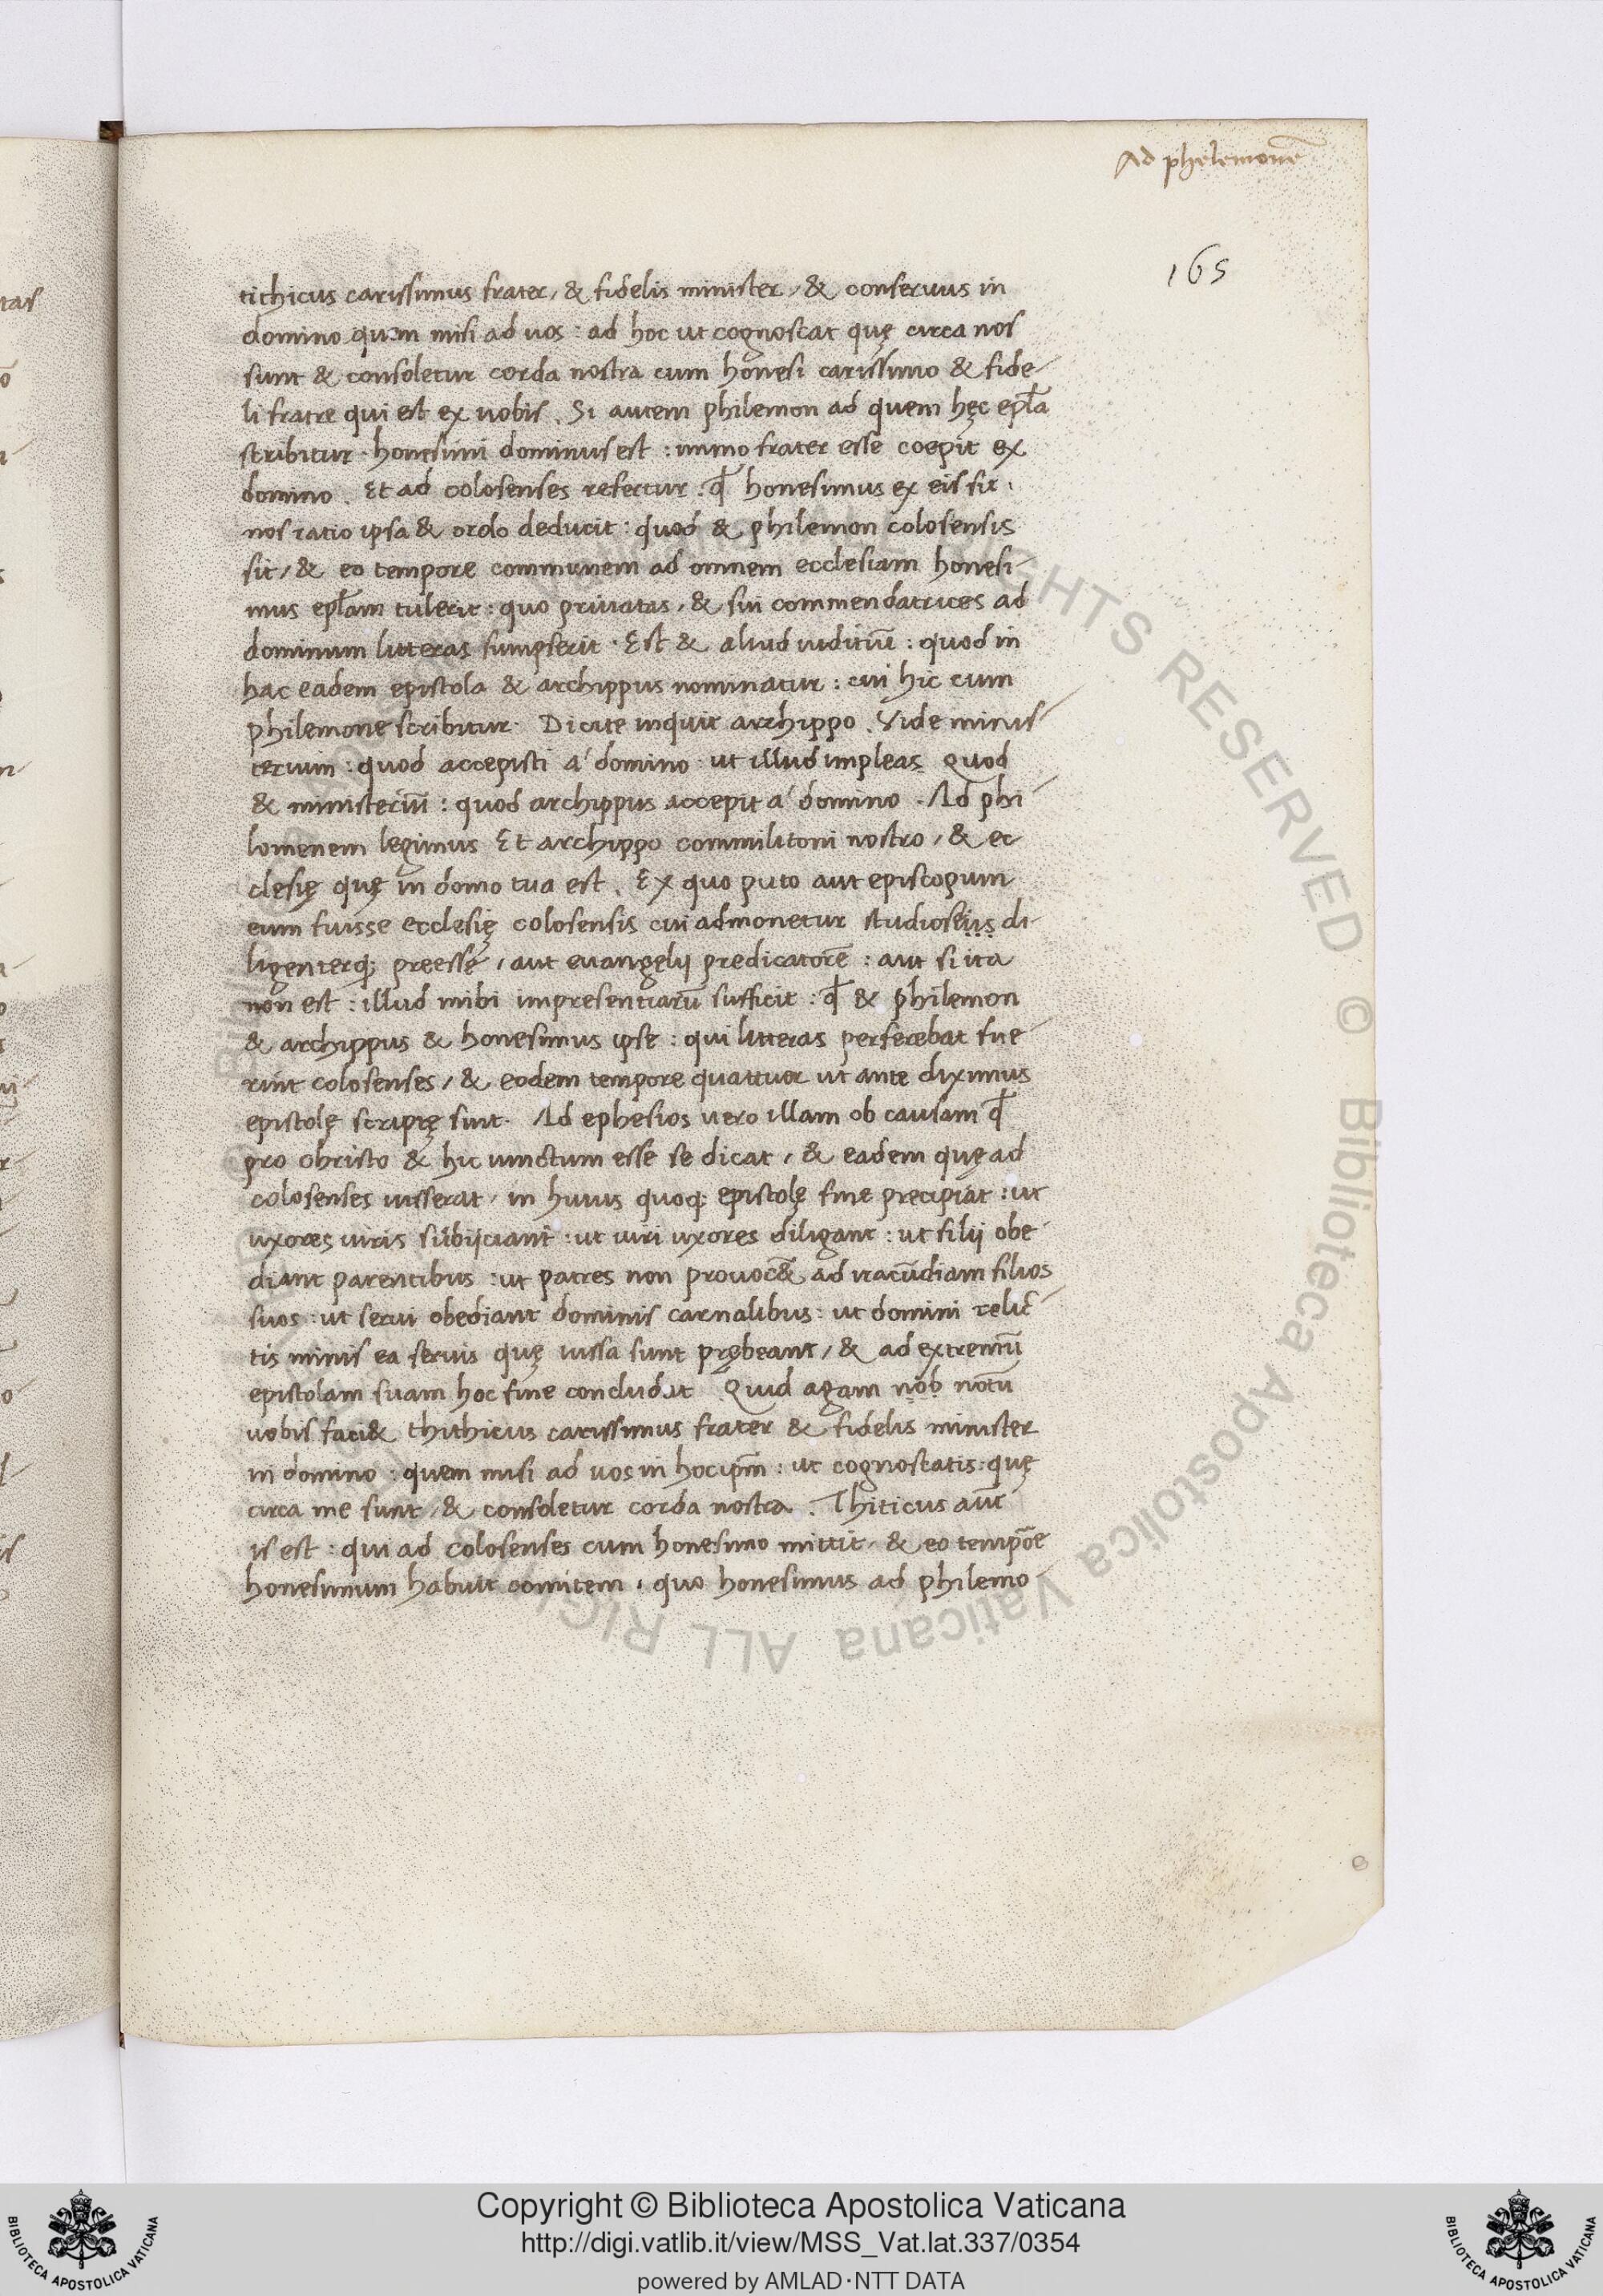 Ad phelemonē
165
tichicus carissimus frater, & fidelis minister, & conseruus in
domino quem misi ad uos : ad hoc ut cognoscat quę circa nos
sunt & consoletur corda nostra cum honesi carissimo & fide-
li fratre qui est ex uobis . Si autem philemon ad quem hęc epła
scribitur · honesimi dominus est : immo frater esse coepit ex
domino . Et ad colosenses refertur : qđ honesimus ex eis sit .
nos ratio ipsa & ordo deducit : quod & philemon colosensis
sit, & eo tempore communem ad omnem ecclesiam honesi-
mus epłam tulerit : quo priuatas, & sui commendatrices ad
dominum litteras sumpserit · Est & aliud inditiū : quod in
hac eadem epistola & archippus nominatur : cui hic cum
philemone scribitur · Dicite inquit archippo . Vide minis-
terium : quod accepisti a' domino ut illud impleas Quod
& ministeriū : quod archippus accepit a' domino . Ad phi-
lomenem legimus Et archippo commilitoni nostro, & ec
clesię quę in domo tua est . Ex quo puto aut episcopum
eum fuisse ecclesię colosensis cui admonetur studioseius di-
ligenterq; preesse, aut euangelij predicatorē : aut si ita
non est : illud mihi impresentiarū sufficit : qđ & philemon
& archippus & honesimus ipse : qui litteras perferebat fue-
rint colosenses, & eodem tempore quattuor ut ante diximus
epistolę scriptę sint . Ad ephesios uero illam ob causam qđ
pro christo & hic uinctum esse se dicat, & eadem quę ad
colosenses iusserat, in huius quoq; epistolę fine precipiat : ut
uxores uiris subijciant : ut uiri uxores diligant : ut filij obe-
diant parentibus : ut patres non prouoc& ad iracūdiam filios
suos : ut serui obediant dominis carnalibus : ut domini relic-
tis minis ea seruis quę iussa sunt prębeant, & ad extremū
epistolam suam hoc fine concludat Quid agam nob notū
uobis faci& thithicus carissimus frater & fidelis minister
in domino : quem misi ad uos in hocipm̄ : ut cognoscatis : quę
circa me sunt, & consoletur corda nostra . Thiticus aūt
is est : qui ad colosenses cum honesimo mittit, & eo tempōe
honesimum habuit comitem, quo honesimus ad philemo-
Copyright © Biblioteca Apostolica Vaticana
http://digi.vatlib.it/view/MSS_Vat.lat.337/0354
powered by AMLAD·NTT DATA